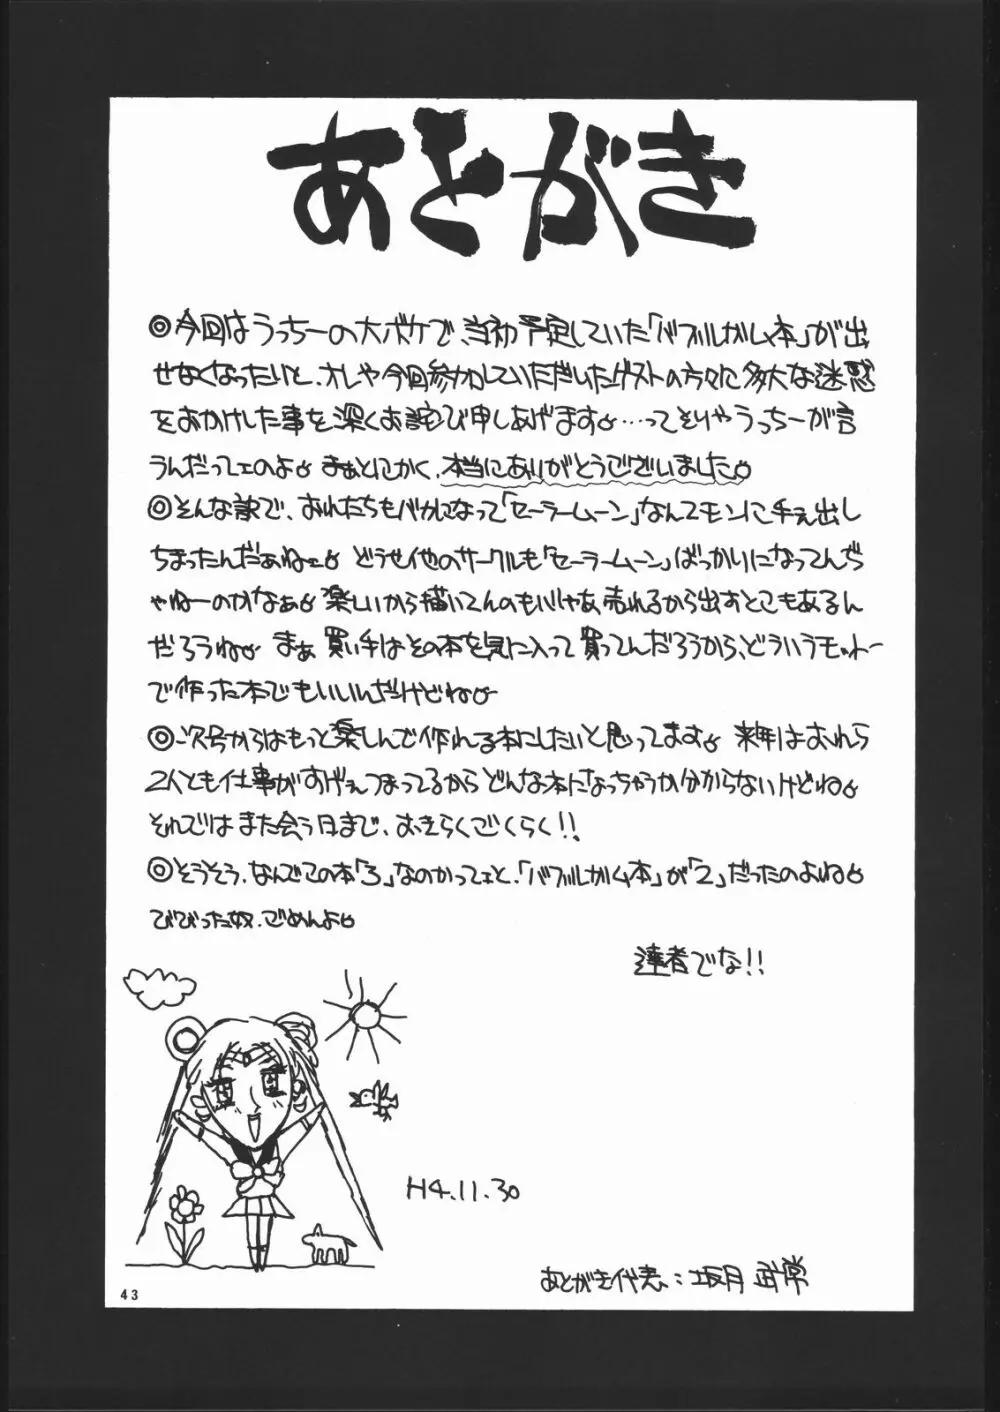 あとがき
◎今回はうっちーの大ボケで、当初予定していた「バブルガム本」が出
せなくなったいと、オレや今回参加していただいたゲストの方々に多大な迷惑
をおかけした事を深くお詫び申しあげます。…ってそりゃうっちーが言
うんだってェのよ。まぁとにかく、本当にありがとうございました。
◎そんな訳で、おれたちもバカになって「セーラームーン」なんてモンに手ぇ出し
ちまったんだぁねェ。どうせ他のサークルも「セーラームーン」ばっかりになってんぢ
ゃねーのかなぁ。楽しいから描いてんのもいじゃあ売れるから出すとこもあるん
だろうね。まぁ買い手はその本を気に入って買ってんだろうから、どういうモットー
で作った本でもいいんだけどね。
◎次号からはもっと楽しんで作れる本にしたいと思ってます。来年はおれら
2人とも仕事がすげぇつまってるからどんな本になっちゃうか分からないけどね。
それではまた会う日まで、おきらくごくらく!!
◎そうそう、なんでこの本「3」なのかってェと、「バブルガム本」が「2」だったのよね。
びびった奴、ごめんよ。
達者でな!!
H4.11.30
あとがき代表:坂月 武常
43